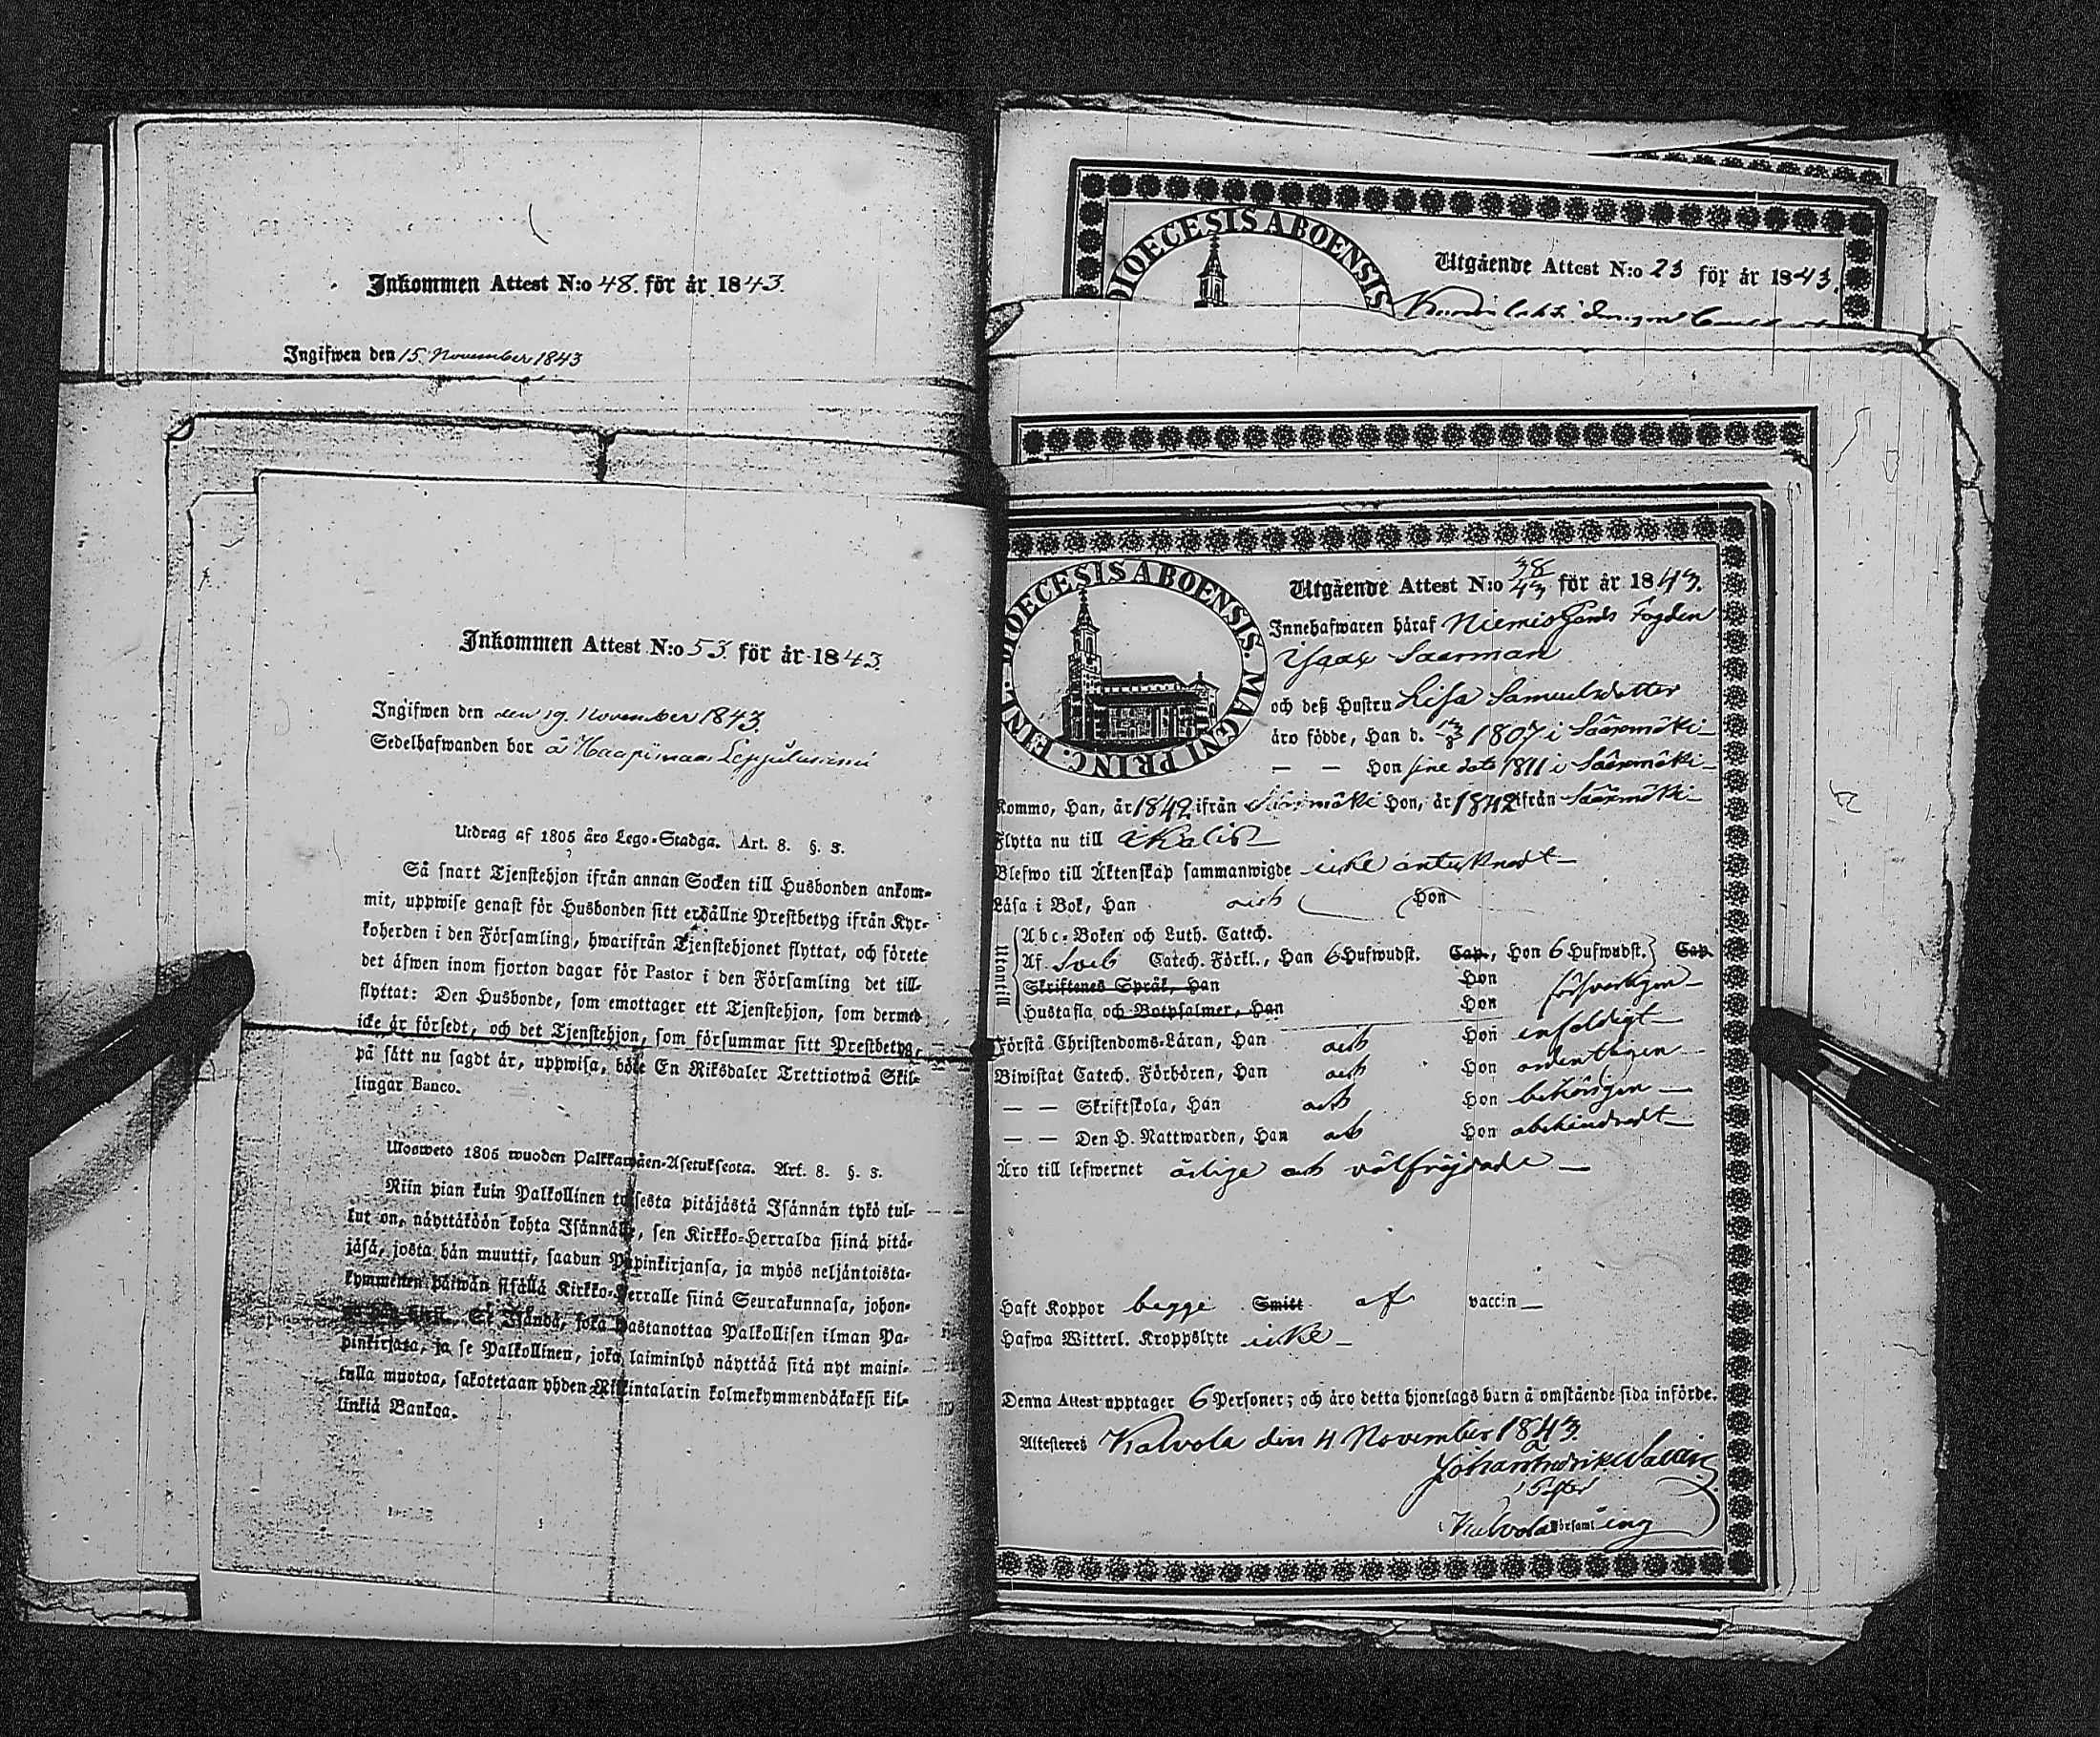 Inkommen Attest N:o 48. för år 1843.
Ingifwen den 15. November 1843
Inkommen Attest N:o 53. för år 1843.
Ingifwen den den 19. November 1843.
Sedelhafwanden bor å Haapimaa
Utdrag af 1805 års Lego-Stadga. Art. 8. §. 3.
Så snart Tjenstehjon ifrån annan Socken till Husbonden ankom-
mit, uppwise genast för Husbonden sitt erhållne Prestbetyg ifrån Kyr-
koherden i den Församling, hwarifrån Tjenstehjonet flyttat, och förete
det äfwen inom fjorton dagar för Pastor i den Församling det till-
flyttat: Den Husbonde, som emottager ett Tjenstehjon, som dermed
icke är försedt, och det Tjenstehjon, som försummar sitt Prestbetyg,
på sätt nu sagdt är, uppwisa, böte En Riksdaler Trettiotwå Skil-
lingar Banco.
Wlosweto 1805 wuoden Palkkawäen-Asetuksesta. Art. 8. §. 3.
Niin pian kuin Palkollinen toisesta pitäjästä Isännän tykö tul-
lut on, näyttäköön kohta Isännälle, sen Kirkko-Herralda siinä pitä-
jäsä, josta hän muutti, saadun Papinkirjansa, ja myös neljäntoista-
kymmenen päiwän sisällä Kirkko-Herralle siinä Seurakunnasa, johon-
Se Isändä, joka wastanottaa Palkollisen ilman Pa-
pinkirjata, ja se Palkollinen, joka laiminlyö näyttää sitä nyt maini-
tulla muotoa, sakotetaan yhden Riikintalarin kolmekymmendäkaksi kil-
linkiä Bankoa.
DIOECESIS ABOENSIS
Utgående Attest N:o 23 för år 1843.
DIOECESIS ABOENSIS. MAGNI PRINC. FINL.
Utgående Attest N:o 38/43 för år 1843.
Innehafwaren häraf Niemis Gårds Fogden
Isaac Saarman
och deß Hustru Lisa Samuelsdotter
äro födde, Han d. 13/8 1807 i Sääxmäki
— — Hon sine dato 1811 i Sääxmäki
Kommo, Han, år 1842 ifrån Sääxmäki Hon, år 1842 ifrån Sääxmäki
Flytta nu till Ikalis
Blefwo till Äktenskap sammanwigde icke antecknadt
Läsa i Bok, Han och Hon
Utantill
Abc-Boken och Luth. Catech.
Af Sveb Catech. Förkl., Han 6 Hufwudst. Cap., Hon 6 Hufwudst. Cap.
Skriftenes Språk, Han Hon försvarligen
Hustafla, och Botpsalmer, Han Hon
Förstå Christendoms-Läran, Han och Hon enfaldigt
Biwistat Catech. Förhören, Han och Hon ordentligen
— — Skriftskola, Han och Hon behörigen
— — Den H. Nattwarden, Han och Hon obehindradt
Äro till lefwernet ärlige och välfräjdade
Haft Koppor begge Smitt af vaccin
Hafwa Witterl. Kroppslyte icke
Denna Attest upptager 6 Personer; och äro detta hjonelags barn å omstående sida införde.
Attesteres Kalvola den 4 November 1843.
Johan Fredrik Wallin
i Kalvola Församling